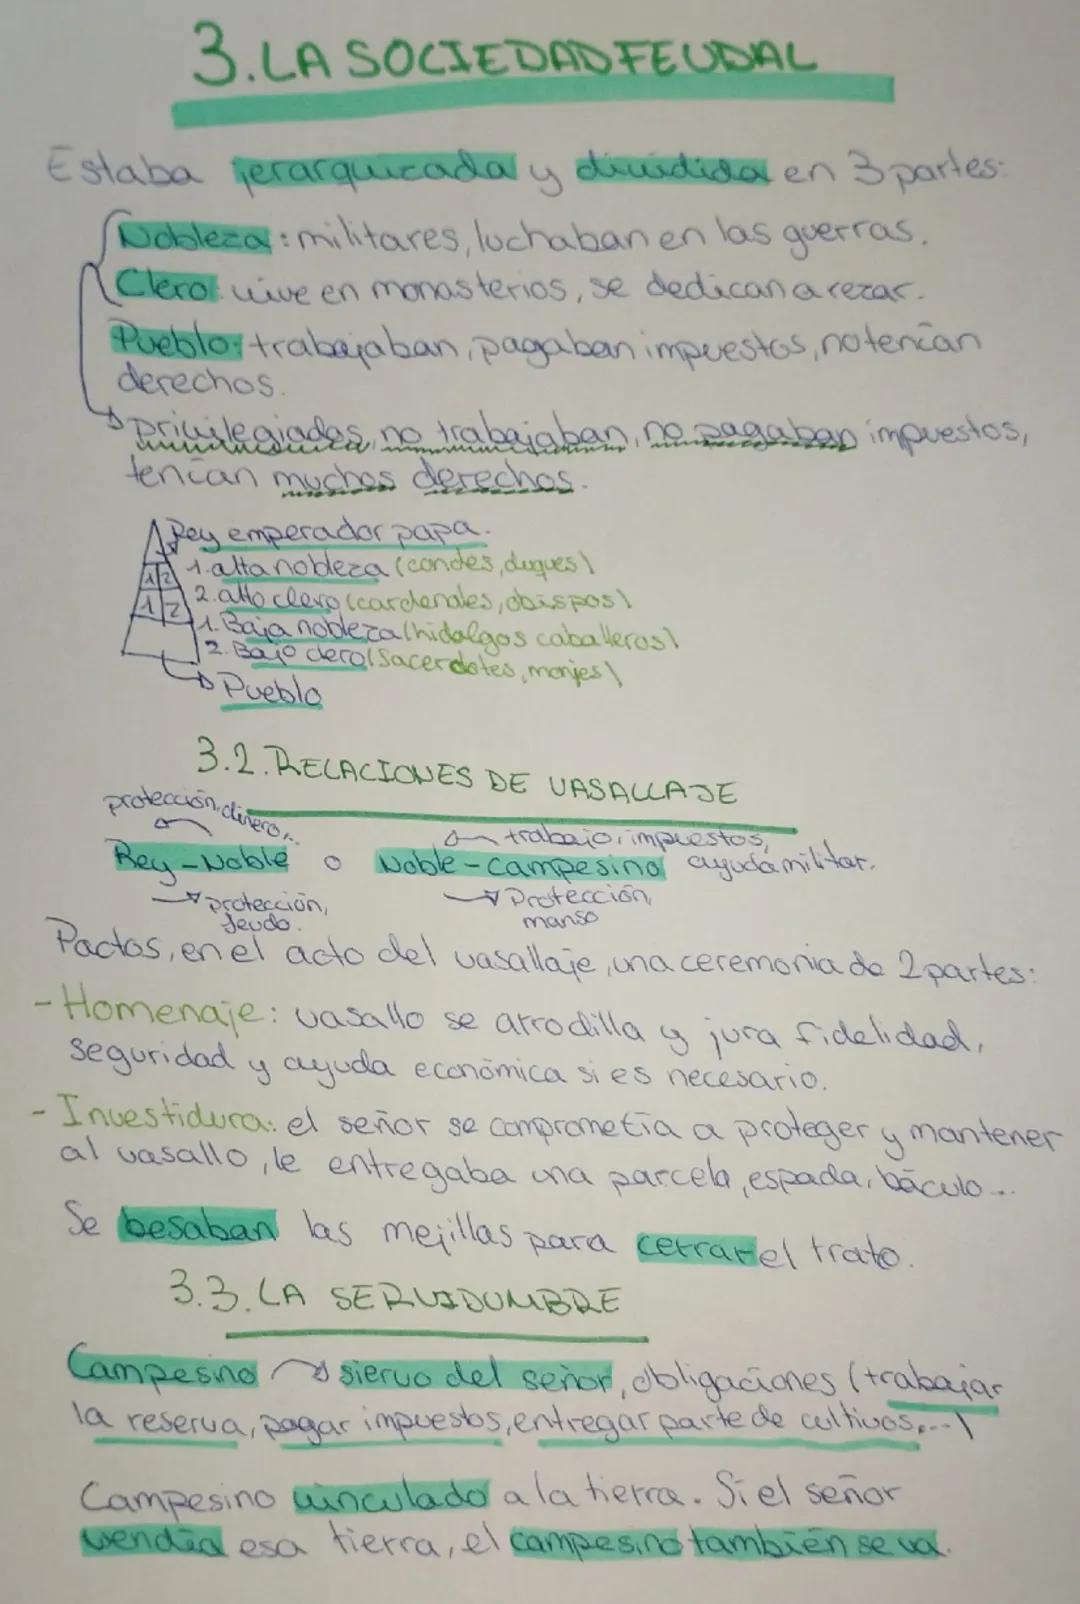 3. LA SOCIEDAD FEUDAL
Estaba jerarquizada y dividida en 3 partes:
Nobleza: militares, luchaban en las guerras.
Clero: vive en monasterios, se dedican a rezar.
Pueblo: trabajaban, pagaban impuestos, no tenían
derechos.
privilegiados, no trabajaban, no pagaban impuestos,
tenían muchos derechos.
Rey emperador papa.
1. alta nobleza (condes, duques)
1 2
2. alto clero (cardenales, obispos)
1 2
1. Baja nobleza (hidalgos caballeros)
2. Bajo clero (Sacerdotes, monjes)
Pueblo
3.2. RELACIONES DE VASALLAJE
protección, dinero...
trabajo, impuestos,
Rey - Noble o Noble - campesino ayuda militar.
protección,
feudo.
Protección,
manso
Pactos, en el acto del vasallaje, una ceremonia de 2 partes:
- Homenaje: vasallo se arrodilla y jura fidelidad,
seguridad y ayuda económica si es necesario.
- Investidura: el señor se comprometía a proteger y mantener
al vasallo, le entregaba una parcela, espada, báculo...
Se besaban las mejillas para cerrar el trato.
3.3. LA SERVIDUMBRE
Campesino siervo del señor, obligaciones (trabajar
la reserva, pagar impuestos, entregar parte de cultivos,...)
Campesino vinculado a la tierra. Si el señor
vendía esa tierra, el campesino también se va.